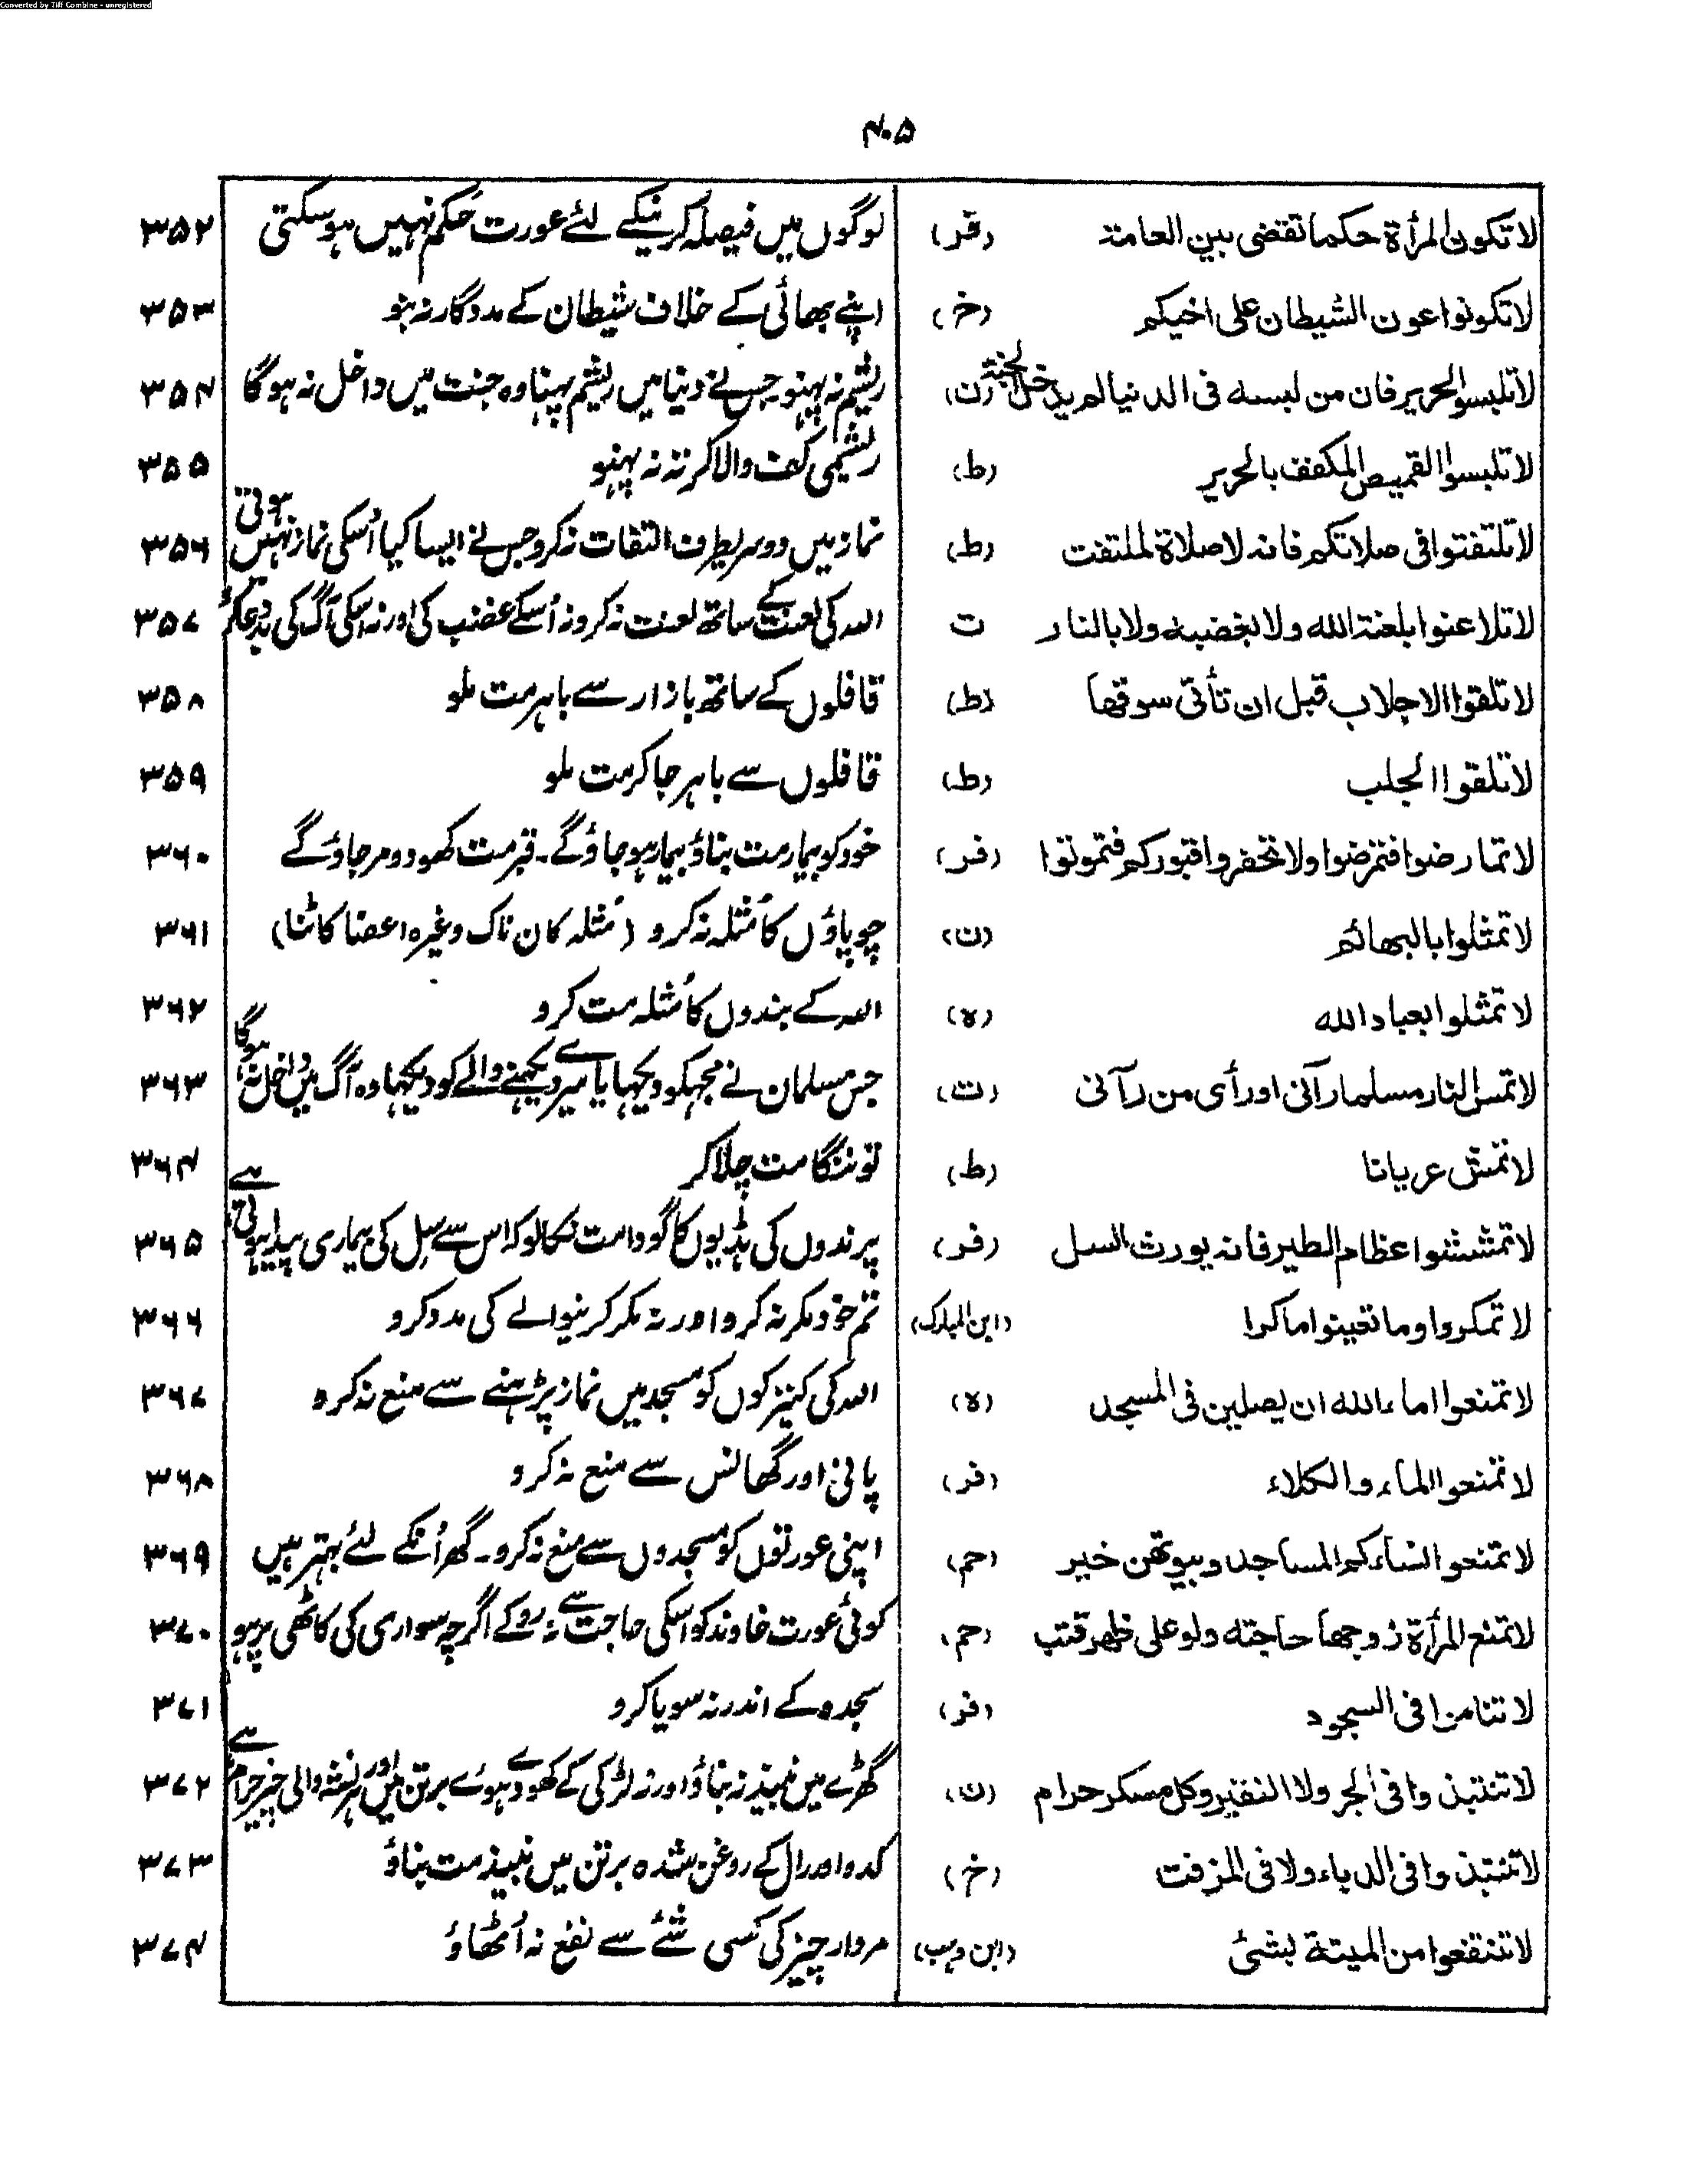 Converted by Tiff Combine - unregistered
۴۰۵
لا تکون المرأة حکما تقضی بین العامة (فر) لوگوں میں فیصلہ کرنیکے لئے عورت حَکم نہیں ہوسکتی ۳۵۲
لا تکونوا عون الشیطان علی اخیکم (خ) اپنے بھائی کے خلاف شیطان کے مددگار نہ بنو ۳۵۳
لا تلبسوا الحریر فان من لبسه فی الدنیا لم یدخل الجنة (ن) ریشم نہ پہنو جس نے دنیا میں ریشم پہنا وہ جنت میں داخل نہ ہوگا ۳۵۴
لا تلبسوا القمیص المکفف بالحریر (ط) ریشمی کف والا کرتہ نہ پہنو ۳۵۵
لا تلتفتوا فی صلاتکم فانه لا صلاة لملتفت (ط) نماز میں دوسریطرف التفات نہ کرو جس نے ایسا کیا اُسکی نماز نہیں ہوتی ۳۵۶
لا تلاعنوا بلعنة الله ولا بغضبه ولا بالنار ت اللہ کی لعنت کے ساتھ لعنت نہ کرو نہ اُسکے غضب کی اور نہ اسکی آگ کی ۳۵۷
لا تلقوا الاجلاب قبل ان تأتی سوقها (ط) قافلوں کے ساتھ بازار سے باہر مت ملو ۳۵۸
لا تلقوا الجلب (ط) قافلوں سے باہر جاکر مت ملو ۳۵۹
لا تمارضوا فتمرضوا ولا تحفروا قبورکم فتموتوا (فر) خود کو بیمار مت بناؤ بیمار ہوجاؤگے۔ قبر مت کھودو مرجاؤگے ۳۶۰
لا تمثلوا بالبهائم (ن) چوپاؤں کا مُثلہ نہ کرو (مُثلہ کان ناک وغیرہ اعضا کاٹنا) ۳۶۱
لا تمثلوا بعباد الله (ہ) اللہ کے بندوں کا مُثلہ مت کرو ۳۶۲
لا تمس النار مسلما رآنی او رأی من رآنی (ت) جس مسلمان نے مجہکو دیکہا یا میرے دیکہنے والے کو دیکہا وہ آگ میں داخل نہ ہوگا ۳۶۳
لا تمش عریانا (ط) تو ننگا مت چلا کر ۳۶۴
لا تمششوا عظام الطیر فانه یورث السل (فر) پرندوں کی ہڈیوں کا گودا مت نکالو کہ اس سے سِل کی بیماری پیدا ہوتی ہے ۳۶۵
لا تمکروا وما تعینوا ماکرا (ابن المبارک) تم خود مکر نہ کرو اور نہ مکر کرنیوالے کی مدد کرو ۳۶۶
لا تمنعوا اماء الله ان یصلین فی المسجد (ہ) اللہ کی کنیزکوں کو مسجد میں نماز پڑہنے سے منع نہ کرو ۳۶۷
لا تمنعوا الماء والکلاء (فر) پانی اور گھانس سے منع نہ کرو ۳۶۸
لا تمنعوا النساءکم المساجد وبیوتهن خیر (حم) اپنی عورتوں کو مسجدوں سے منع نہ کرو۔ گھر اُنکے لئے بہتر ہیں ۳۶۹
لا تمنع المرأة زوجها حاجته ولو علی ظهر قتب (حم) کوئی عورت خاوند کو اسکی حاجت سے نہ روکے اگرچہ سواری کی کاٹھی پر ہو ۳۷۰
لا تنامن فی السجود (فر) سجدہ کے اندر نہ سویا کرو ۳۷۱
لا تنتبذوا فی الجر ولا النقیر وکل مسکر حرام (ن) گھڑے میں نبیذ نہ بناؤ اور نہ لڑکی کے کھودے ہوئے برتن میں اور ہر نشہ والی چیز حرام ہے ۳۷۲
لا تنتبذوا فی الدباء ولا فی المزفت (خ) کدو اور رال کے روغن شدہ برتن میں نبیذ مت بناؤ ۳۷۳
لا تنتفعوا من المیتة بشئ (ابن وہب) مردار چیز کی کسی شئے سے نفع نہ اُٹھاؤ ۳۷۴